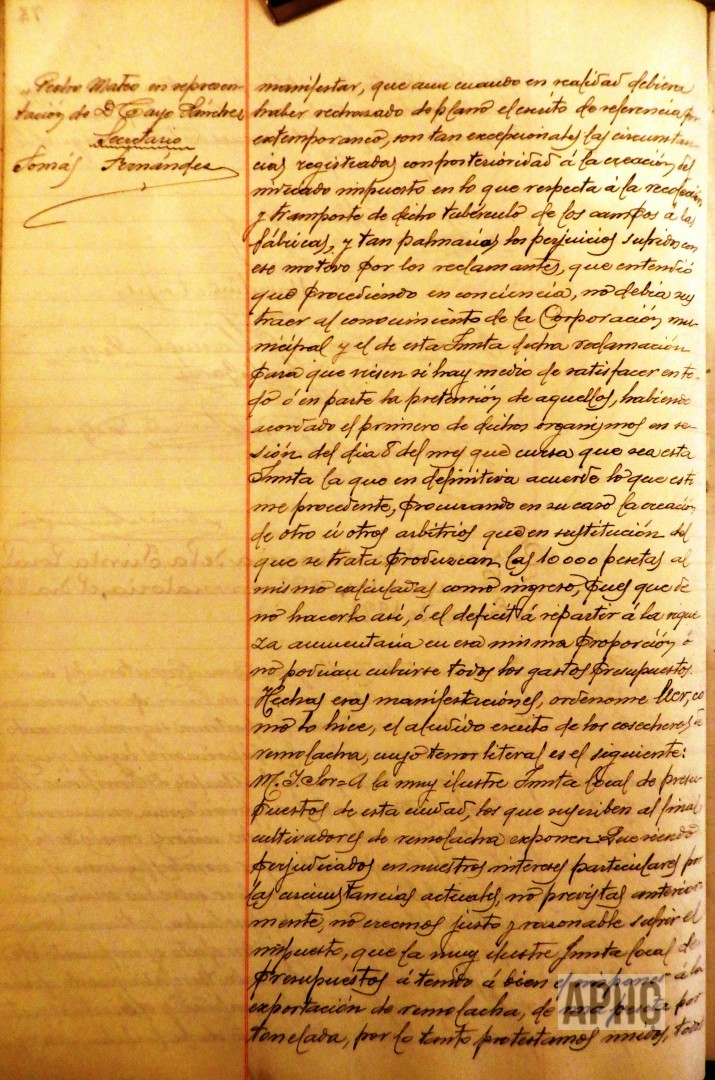 Pedro Mateo en represen-
tación de D Cayo Sánchez
Secretario
Tomás Fernández
manifestar, que aun cuando en realidad debiera
haber rechazado de plano el escrito de referencia por
extemporaneo, son tan excepcionales las circunstan
cias registradas con posterioridad á la creación del
mizcado impuesto en lo que respecta á la recolección
y transporte de dicho tubérculo de los campos á las
fábricas, y tan palmarios los perjuicios sufridos con
ese motivo por los reclamantes, que entendió
que procediendo en conciencia, no debia sus
traer al conocimiento de la Corporación mu-
nicipal y el de esta Junta dicha reclamación
para que viesen si hay medio de satisfacer en to-
do ó en parte la pretensión de aquellos, habiendo
acordado el primero de dichos organismos en se-
sión del dia 8 del mes que cursa que sea esta
Junta la que en definitiva acuerde lo que esti
me procedente, procurando en su caso la creación
de otro ú otros arbitrios que en sustitución del
que se trata produzcan las 10000 pesetas al
mismo calculadas como ingreso, pues que de
no hacerlo asi, ó el deficit á repartir á la rique
za aumentaria en esa misma proporción ó
no podrian cubrirse todos los gastos presupuestos.
Hechas esas manifestaciones, ordenome leer, co
mo lo hice, el aludido escrito de los cosecheros de
remolacha, cuyo tenor literal es el siguiente:
M. I. Sor = A la muy ilustre Junta local de presu
puestos de esta ciudad, los que suscriben al final
cultivadores de remolacha exponen: Que siendo
perjudicados en nuestros intereses particulares por
las circunstancias actuales, no previstas anterior-
mente, no creemos justo y razonable sufrir el
impuesto, que la muy ilustre Junta local de
Presupuestos á tenido á bien el imponer á la
exportación de remolacha, de una peseta por
tonelada, por lo tanto protestamos unidos, todos